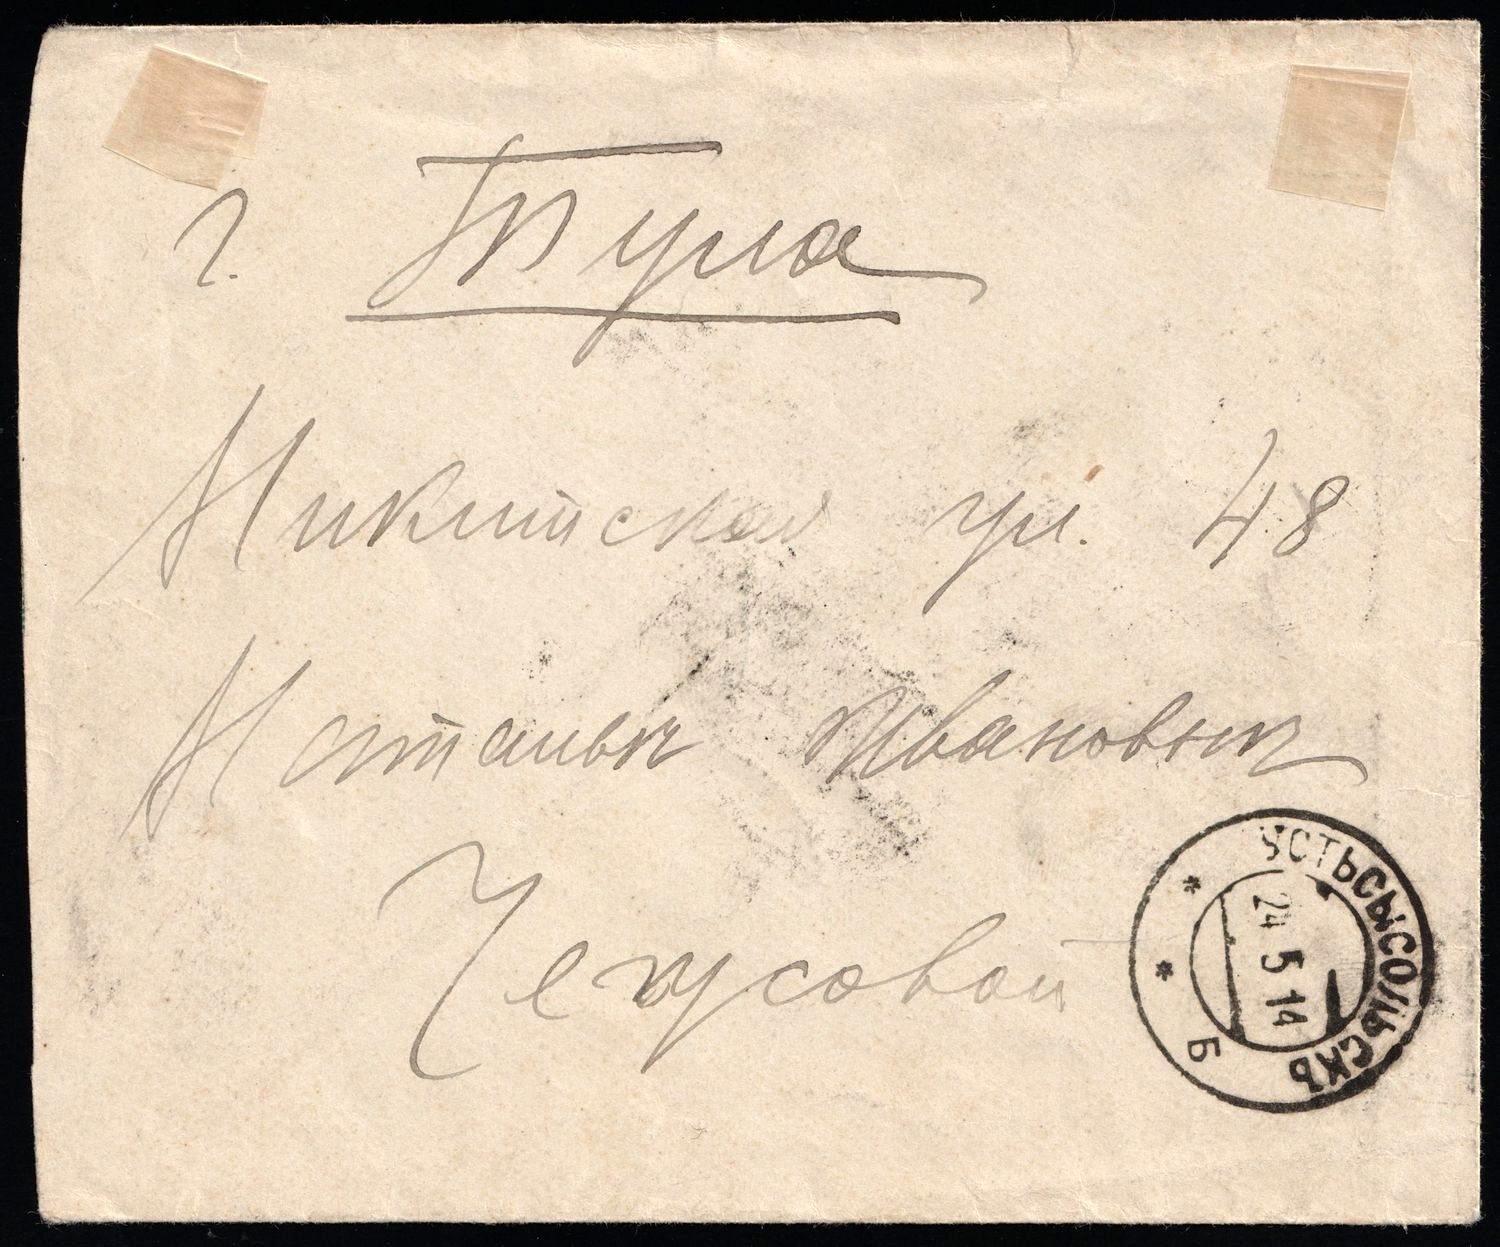 г. Тула
Никитская ул. 48
Натальи Ивановны
УСТЬСЫСОЛЬСКЪ
24 5 14
Б